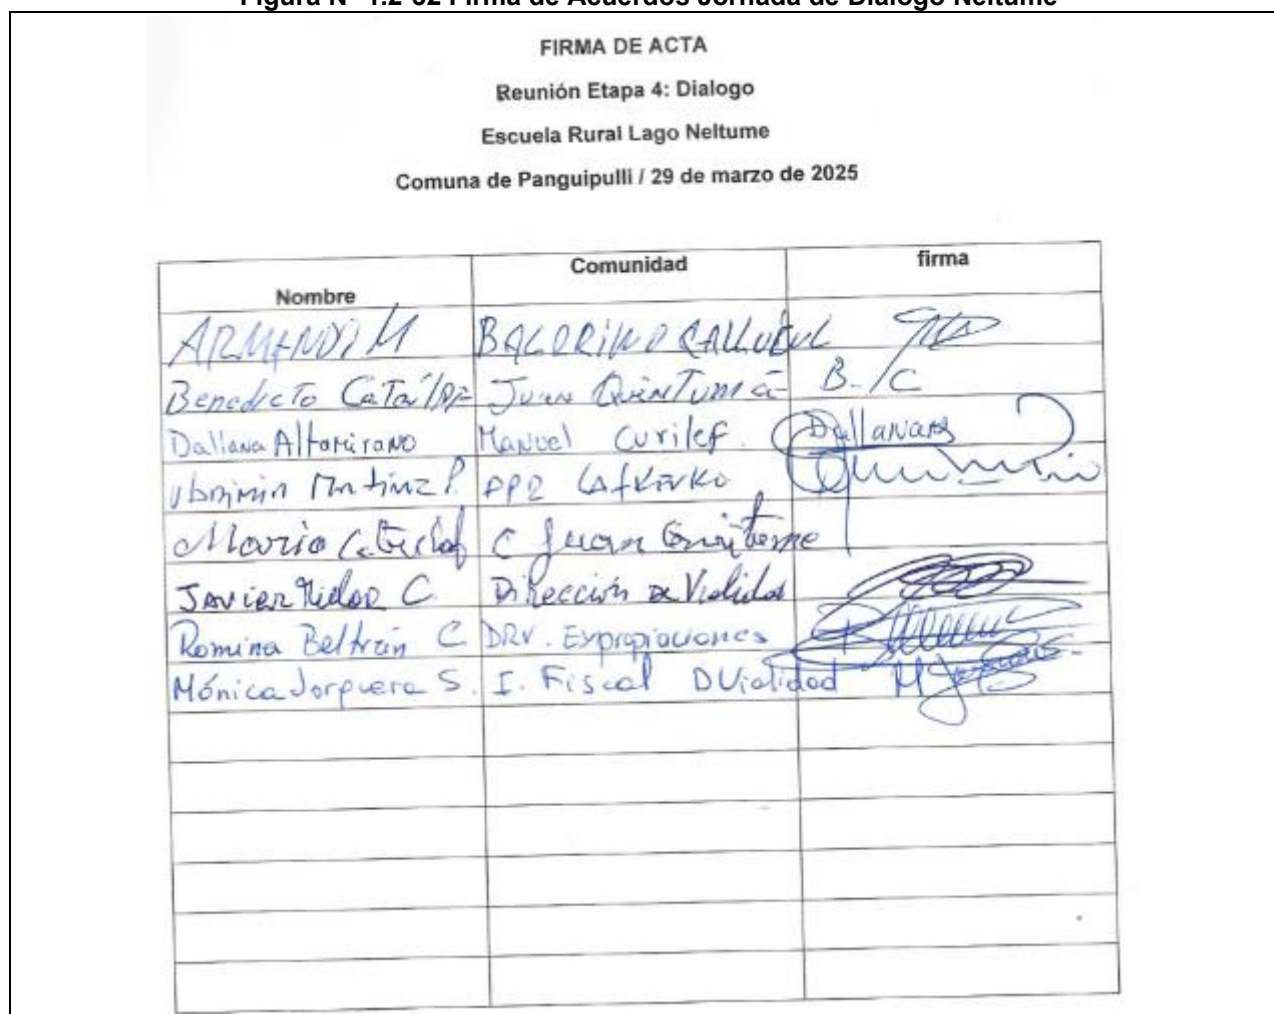 Figura N° 4.2-32 Firma de Acuerdos Jornada de Dialogo Neltume
FIRMA DE ACTA
Reunión Etapa 4: Dialogo
Escuela Rural Lago Neltume
Comuna de Panguipulli / 29 de marzo de 2025
Nombre Comunidad firma
ARMANDO M
Benedicto Juan B. / C
Dallana Altamirano Manuel Curilef Dallana
Martinez P.
Mario C Juan
Javier C. Dirección de Vialidad
Romina Beltrán C. DRV. Expropiaciones
Mónica Jorquera S. I. Fiscal DVialidad